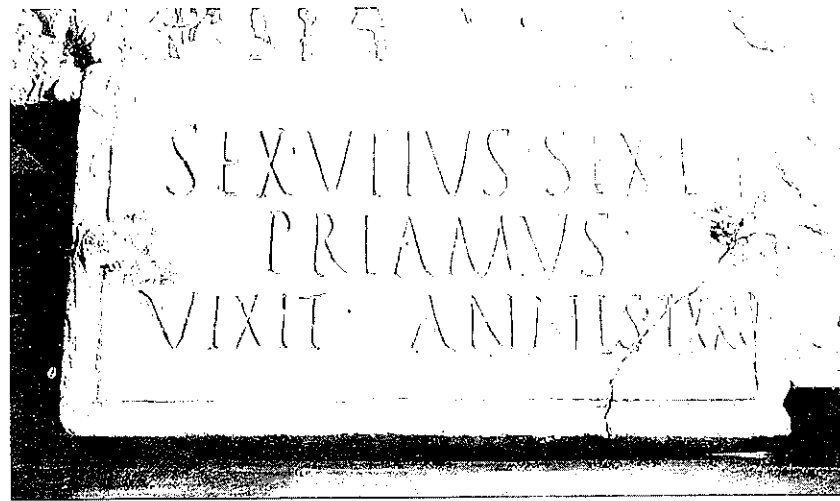 SEX · SEX · L
PRIAMVS
VIXIT · ANNIS